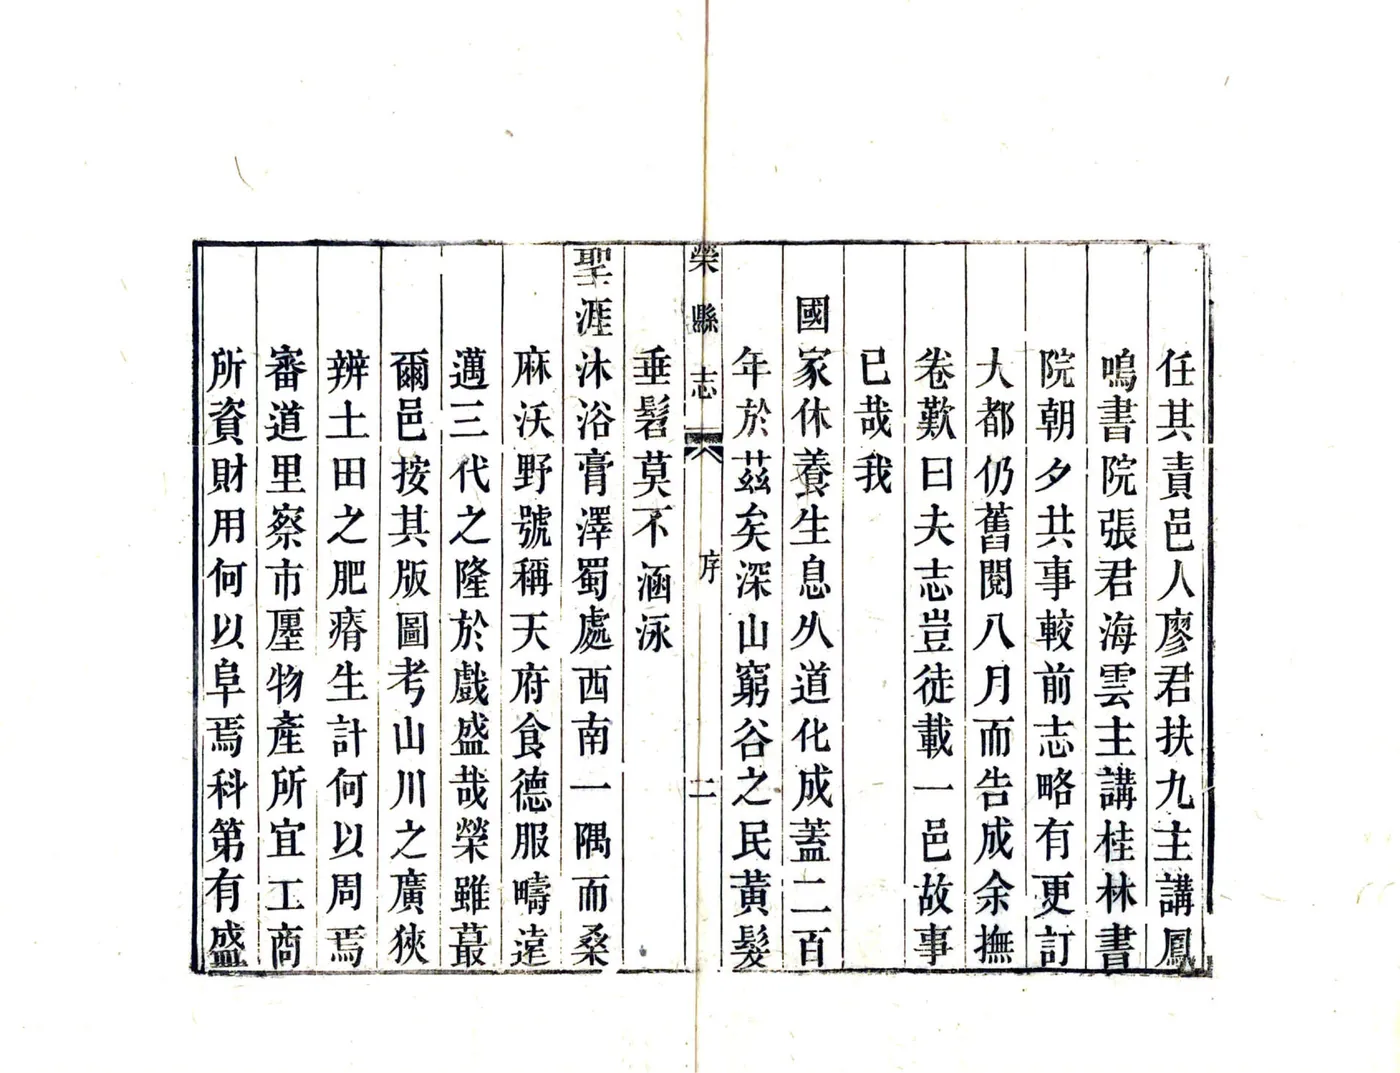 任其責邑人廖君扶九主講鳳
鳴書院張君海雲主講桂林書
院朝夕共事較前志略有更訂
大都仍舊閱八月而告成余撫
卷歎曰夫志豈徒載一邑故事
已哉我
國家休養生息久道化成蓋二百
年於茲矣深山窮谷之民黃髮
榮縣志 序 二
垂髫莫不涵泳
聖涯沐浴膏澤蜀處西南一隅而桑
麻沃野號稱天府食德服疇遠
邁三代之隆於戲盛哉榮雖蕞
爾邑按其版圖考山川之廣狹
辨土田之肥瘠生計何以周焉
審道里察市廛物產所宜工商
所資財用何以阜焉科第有盛